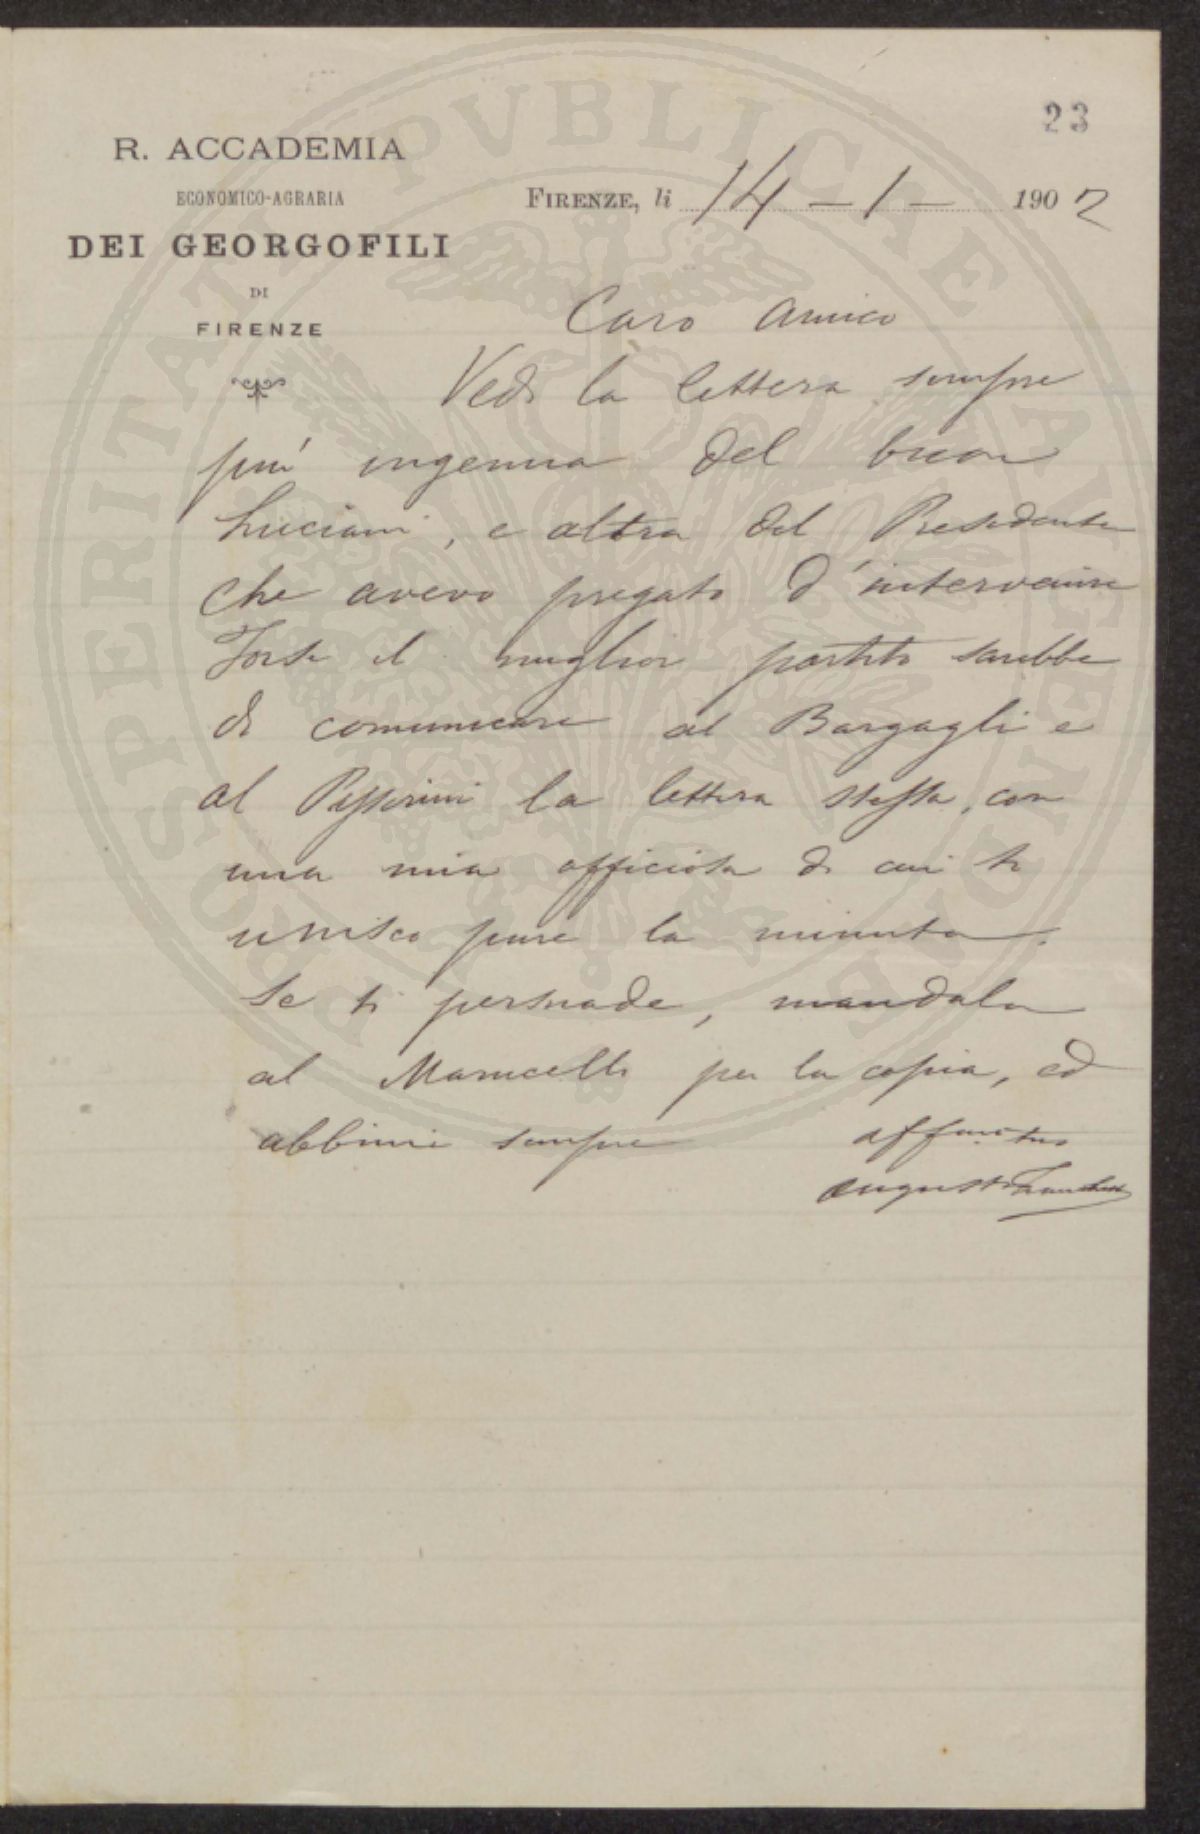 23
R. ACCADEMIA
ECONOMICO-AGRARIA
DEI GEORGOFILI
DI
FIRENZE
FIRENZE, li 14 - 1 - 1902
Caro Amico
Vedi la lettera sempre
più ingenua del buon
Luciani, e altra del Presidente
che avevo pregato d'intervenire
Forse il miglior partito sarebbe
di comunicare al Bargagli e
al Passerini la lettera stessa, con
una mia officiosa di cui ti
unisco pure la minuta.
Se ti persuade, mandala
al per la copia, ed
abbimi sempre aff.mo tuo
Augusto Franchetti
PROSPERITATI PVBLICAE AVGENDAE